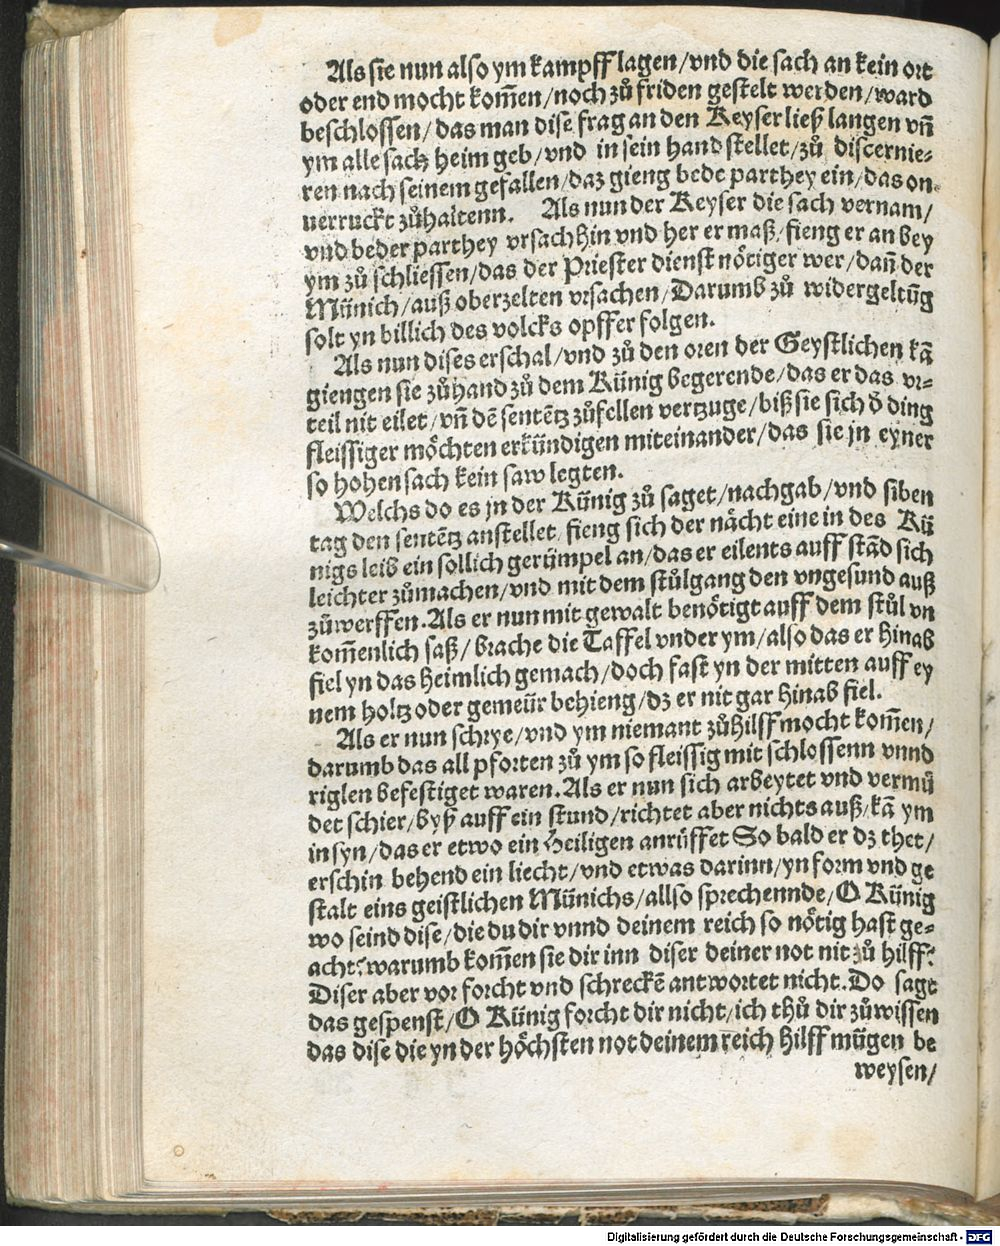 Als sie nun also ym kampff lagen/vnd die sach an kein ort
oder end mocht kom̃en/noch zů friden gestelt werden/ward
beschlossen/das man dise frag an den Keyser ließ langen vñ
ym alle sach heim geb/vnd in sein hand stellet/zů discernie⸗
ren nach seinem gefallen/daz gieng bede parthey ein/das on⸗
uerruckt zůhaltenn. Als nun der Keyser die sach vernam/
vnd beder parthey vrsach hin vnd her ermaß/fieng er an bey
ym zů schliessen/das der Priester dienst nötiger wer/dañ der
Münich/auß oberzelten vrsachen/Darumb zů widergeltũg
solt yn billich des volcks opffer folgen.
Als nun dises erschal/vnd zů den oren der Geystlichen kã
giengen sie zůhand zů dem Künig begerende/das er das vr⸗
teil nit eilet/vñ dẽ sentẽtz zůfellen vertzuge/biß sie sich d̕ ding
fleissiger möchten erkündigen miteinander/das sie jn eyner
so hohen sach kein saw legten.
Welchs do es jn der Künig zů saget/nachgab/vnd siben
tag den sentẽtz anstellet/fieng sich der nächt eine in des Kü
nigs leib ein sollich gerümpel an/das er eilents auff stãd sich
leichter zůmachen/vnd mit dem stůlgang den vngesund auß
zůwerffen.Als er nun mit gewalt benötigt auff dem stůl vn
kom̃enlich saß/brache die Taffel vnder ym/also das er hinab
fiel yn das heimlich gemach/doch fast yn der mitten auff ey
nem holtz oder gemeür behieng/dz er nit gar hinab fiel.
Als er nun schrye/vnd ym niemant zůhilff mocht kom̃en/
darumb das all pforten zů ym so fleissig mit schlossenn vnnd
riglen befestiget waren.Als er nun sich arbeytet vnd vermů
det schier/byß auff ein stund/richtet aber nichts auß/kã ym
in syn/das er etwo ein Heiligen anrüffet So bald er dz thet/
erschin behend ein liecht/vnd etwas darinn/yn form vnd ge
stalt eins geistlichen Münichs/allso sprechennde/O Künig
wo seind dise/die du dir vnnd deinem reich so nötig hast ge⸗
acht?warumb kom̃en sie dir inn diser deiner not nit zů hilff?
Diser aber vor forcht vnd schreckẽ antwortet nicht.Do sagt
das gespenst/O Künig forcht dir nicht/ich thů dir zůwissen
das dise die yn der höchsten not deinem reich hilff mügen be
weysen/
Digitalisierung gefördert durch die Deutsche Forschungsgemeinschaft - DFG